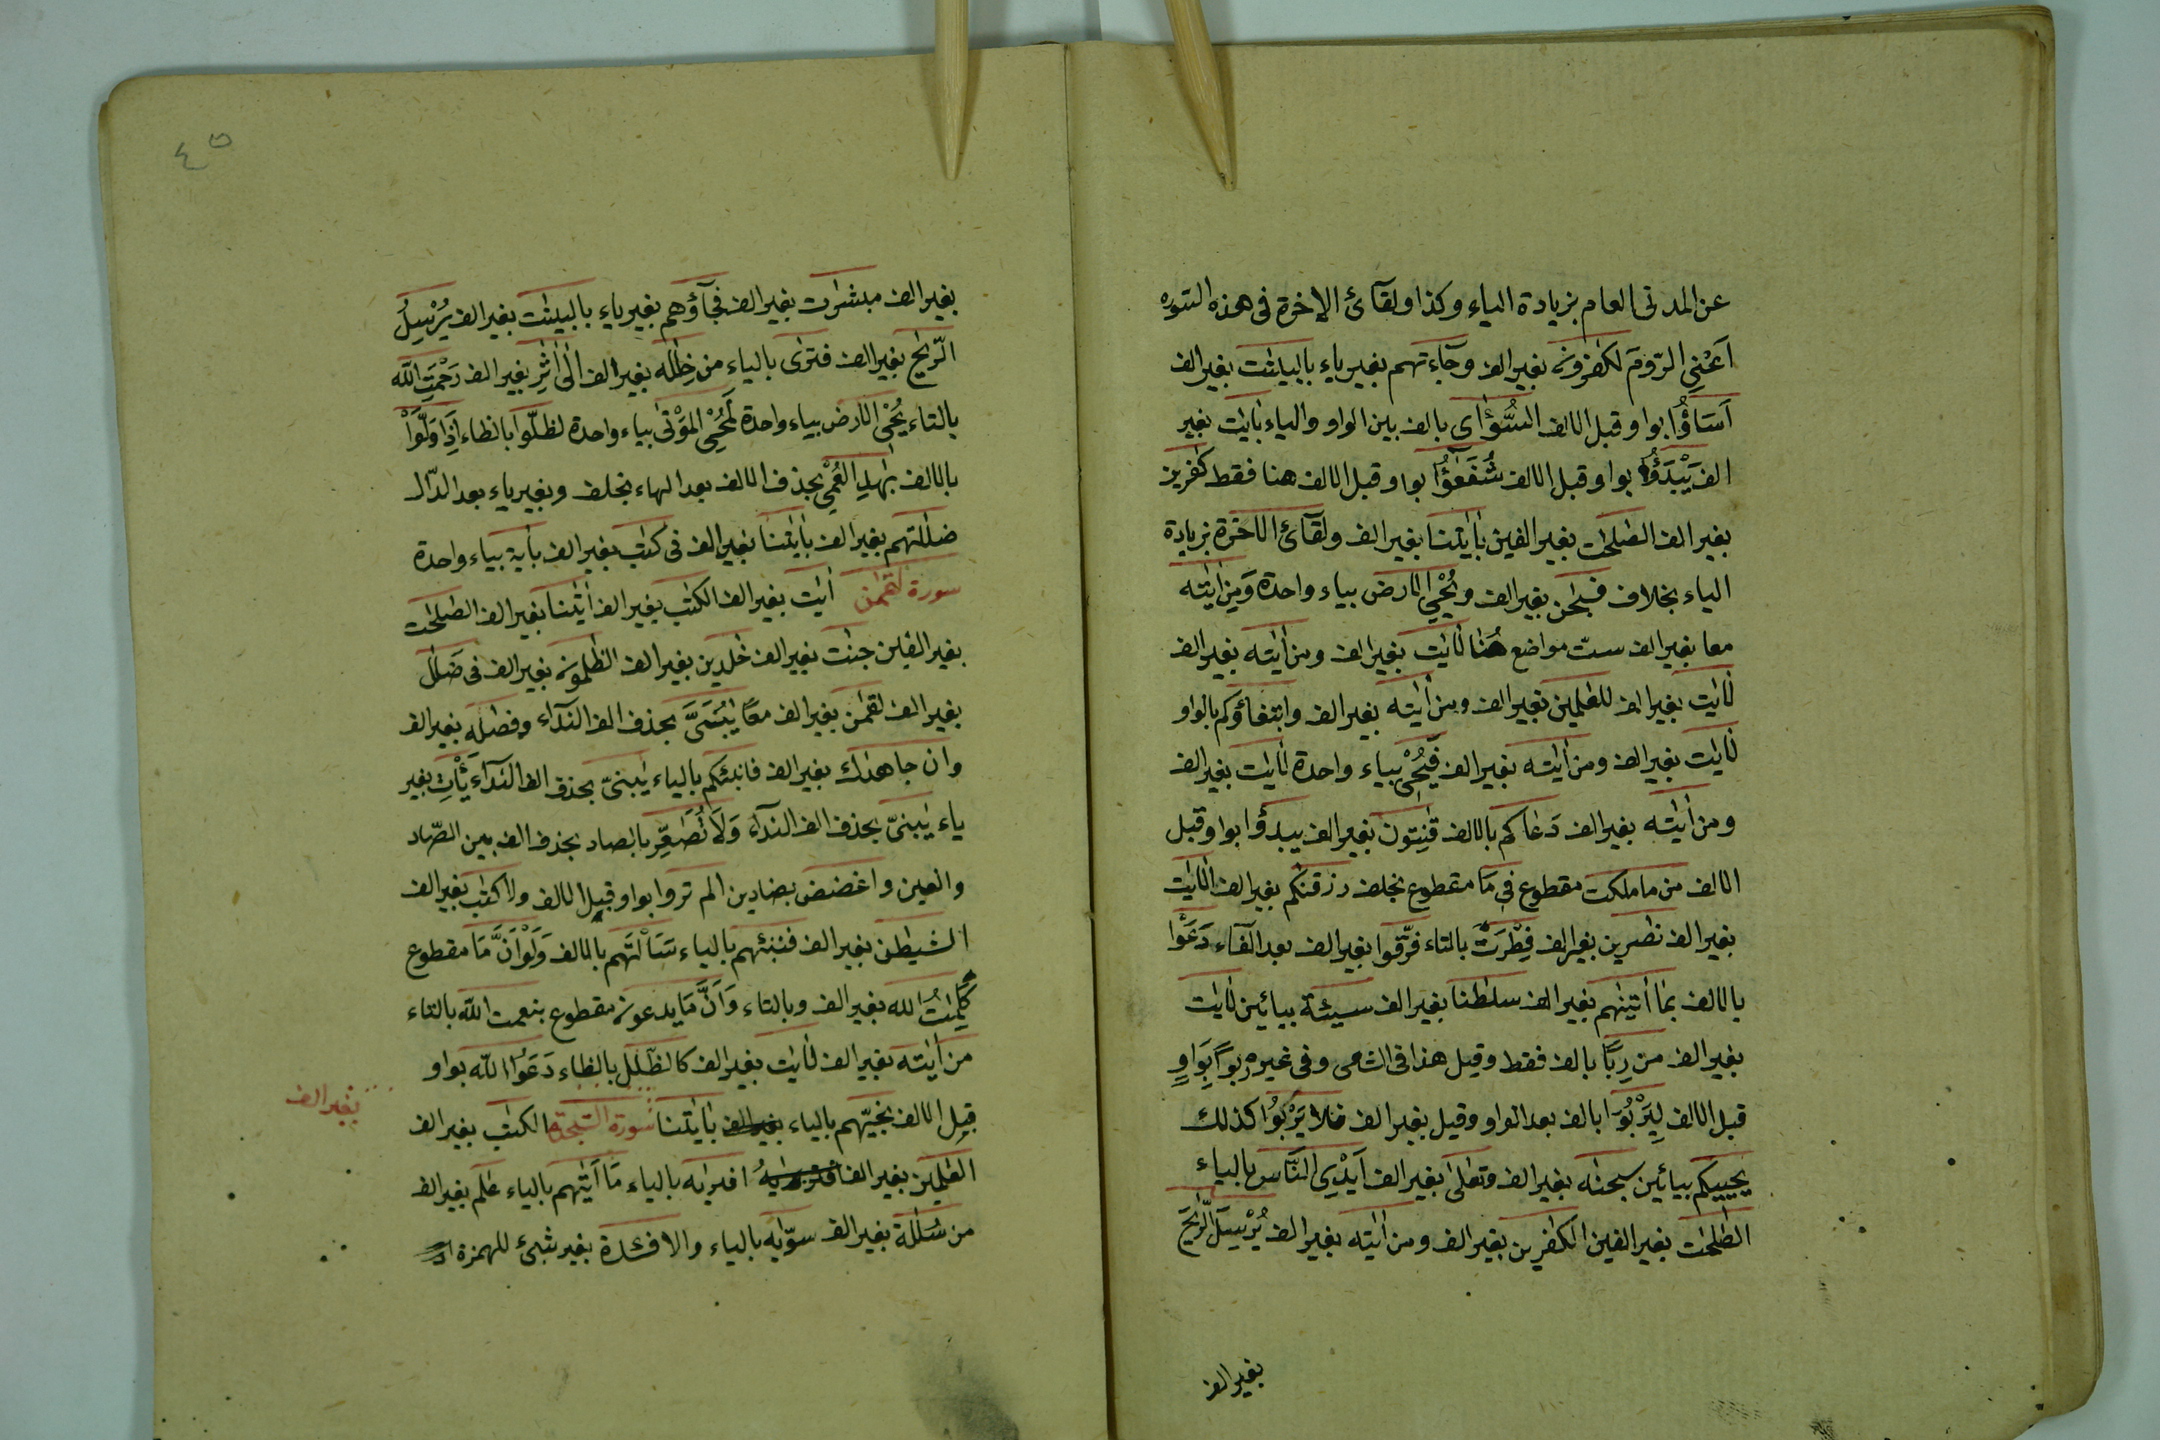 عن المدنى العام بزيادة الياء وكذا ولقآئ الاخرة فى هذه السوره
اَعْنِى الرّومَ لكٰفرونَ بغير الف وجآءتهم بغير ياء بالبيلنٰت بغير الف
اَسَاۤؤُا بواو قبل الالف السُّوٓأى بالف بين الواو والياء بٔايٰت بغير
الف يَبْدَؤُا بواو قبل الالف شُفَعٰٓؤُا بواو قبل الالف هنا فقط كٰفرين
بغير الف الصّٰلحٰت بغير الفين بٔايٰتنا بغير الف ولقآئ الاخرة بزيادة
الياء بخلاف فسبحٰن بغير الف ويُحْىِ الارض بياء واحدة وَمِن اٰيٰته
معا بغير الف ستّ مواضع هُنا لٔايٰت بغير الف ومن اٰيٰته بغير الف
لٔايٰت بغير الف للعٰلمين بغير الف ومن اٰيٰته بغير الف وابتغاؤكم بالواو
لٔايٰت بغير الف ومن اٰيٰته بغير الف فَيُحْىٖ بياء واحدة لٔايٰت بغير الف
ومن اٰيٰته بغير الف دَعَاكم بالالف قٰنِتون بغير الف يبدؤا بواو قبل
الالف من ما ملكت مقطوع فى مَا مقطوع بخلف رزقنٰكم بغير الف الٔايٰت
بغير الف نٰصرين بغير الف فِطْرَتَ بالتاء فرّقوا بغير الف بعد الفآء دَعَوْا
بالالف بمَا اٰتينٰهم بغير الف سلطٰنا بغير الف سيئة بيائين لٔايٰت
بغير الف من رِبًا بالف فقط وقيل هذا فى الشامى وفى غيره رِبوًا بِوَاوٍ
قبل الالف لِيَرْبُوَا بالف بعد الواو وقيل بغير الف فلا يَرْبُوا كذلك
يحييكم بيائين سبحٰنه بغير الف وتعٰلى بغير الف اَيْدِى النَّاسِ بالياء
الصّٰلحٰت بغير الفين الكٰفرين بغير الف ومن اٰيٰته بغير الف يُرْسِلَ الرِّيٰحَ
بغير الف
٤٥
بغير الف مبشرٰت بغير الف فجآؤهم بغير ياء بالبينٰت بغير الف يُرْسِلُ
الرّيٰح بغير الف فترى بالياء من خِلٰله بغير الف الٰى اٰثٰرِ بغير الف رَحْمَتِ اللّٰه
بالتاء يُحْىِ الارض بياء واحدة لَمُحْىِ المَوْتٰى بياء واحدة لظلّوا بالظاء اِذا وَلَّوْا
بالالف بِهٰدِ العُمْىِ بحذف الالف بعد الهاء بخلف وبغير ياء بعد الدّال
ضلٰلتهم بغير الف بٔايٰتنا بغير الف فى كتٰب بغير الف بٔاية بياء واحدة
سورة لقمٰن اٰيٰت بغير الف الكتٰب بغير الف اٰيٰتنا بغير الف الصّٰلحٰت
بغير الفين جنّٰت بغير الف خٰلدين بغير الف الظّٰلمون بغير الف فى ضَلٰل
بغير الف لقمٰن بغير الف معًا يٰبُنَىَّ بحذف الف النّدآء وفصٰله بغير الف
وان جاهدٰك بغير الف فانبئكم بالياء يٰبنىّ بحذف الف النّدآء يَأْتِ بغير
ياء يٰبنىّ بحذف الف النّدآء وَلَا تُصَٰعِّر بالصاد بحذف الف بين الصّاد
والعين واغضض بضادين الم تروا بواو قبل الالف ولا كتٰب بغير الف
الشيطٰن بغير الف فننبّئهم بالياء سَاَلْتَهم بالالف وَلَوْ اَنَّ مَا مقطوع
كَلِمٰتُ الله بغير الف وبالتاء وَاَنَّ مَا يدعون مقطوع بنعمت اللّٰه بالتاء
من اٰيٰته بغير الف لٔايٰت بغير الف كالظّلل بالظاء دَعَوُا اللّٰه بواو
قبل الالف نجّيٰهم بالياء بغير الف بٔايٰتنا سورة السّجدة الكتٰب بغير الف
بغير الف
العٰلمين بغير الف افترٰيه بالياء مَا اَتٰيهم بالياء عٰلم بغير الف
من سُلٰلة بغير الف سوّٰيه بالياء والافئدة بغير شئ للهمزة